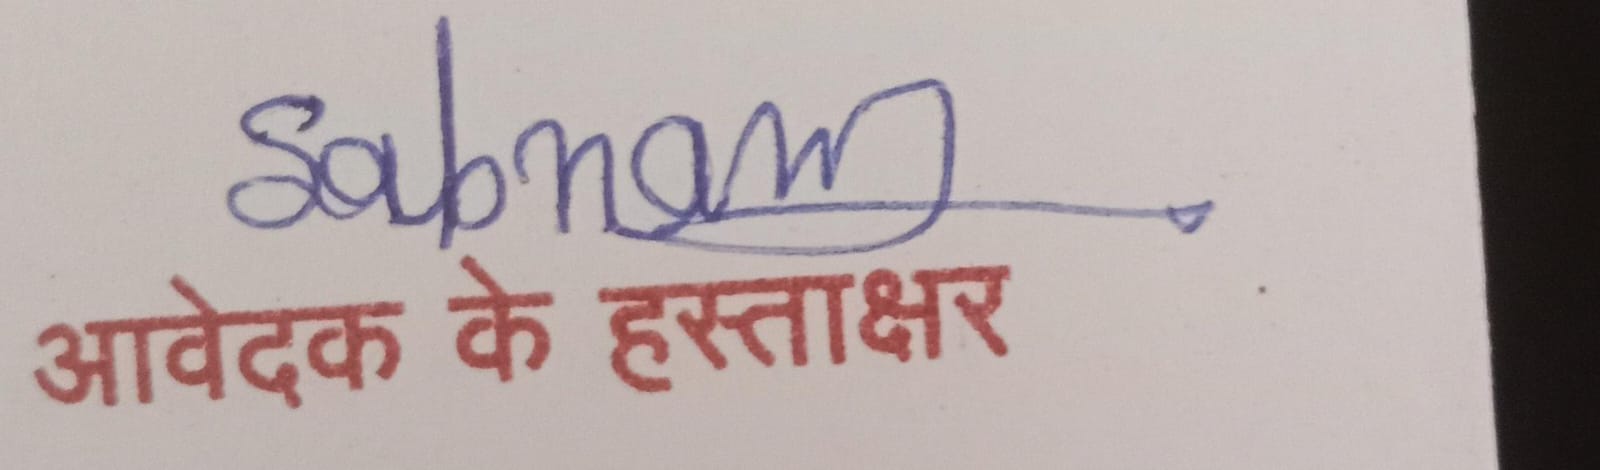 Sabnam
आवेदक के हस्ताक्षर